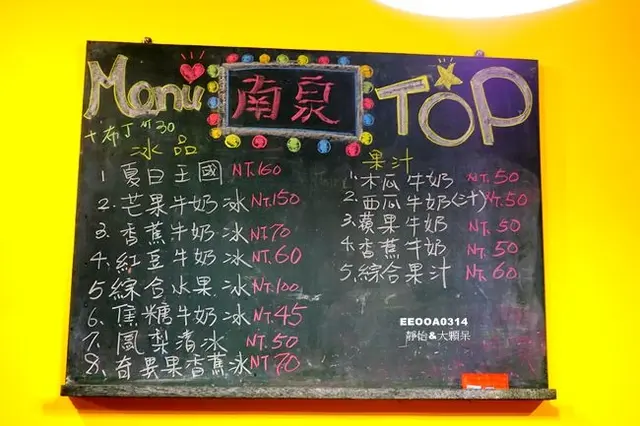 Manu 南泉 TOP
十布丁NT30
冰品
1 夏日王國 NT.160
2. 芒果牛奶冰 NT.150
3. 香蕉牛奶冰 NT70
4. 紅豆牛奶冰 NT.60
5 綜合水果冰 NT.100
6. 焦糖牛奶冰 NT.45
7. 鳳梨清冰 NT.50
8. 奇異果香蕉冰 NT70
果汁
1. 木瓜牛奶 NT.50
2. 西瓜牛奶(汁) NT.50
3. 蘋果牛奶 NT.50
4. 香蕉牛奶 NT.50
5. 綜合果汁 NT.60
EEOOA0314
靜怡&大顆呆